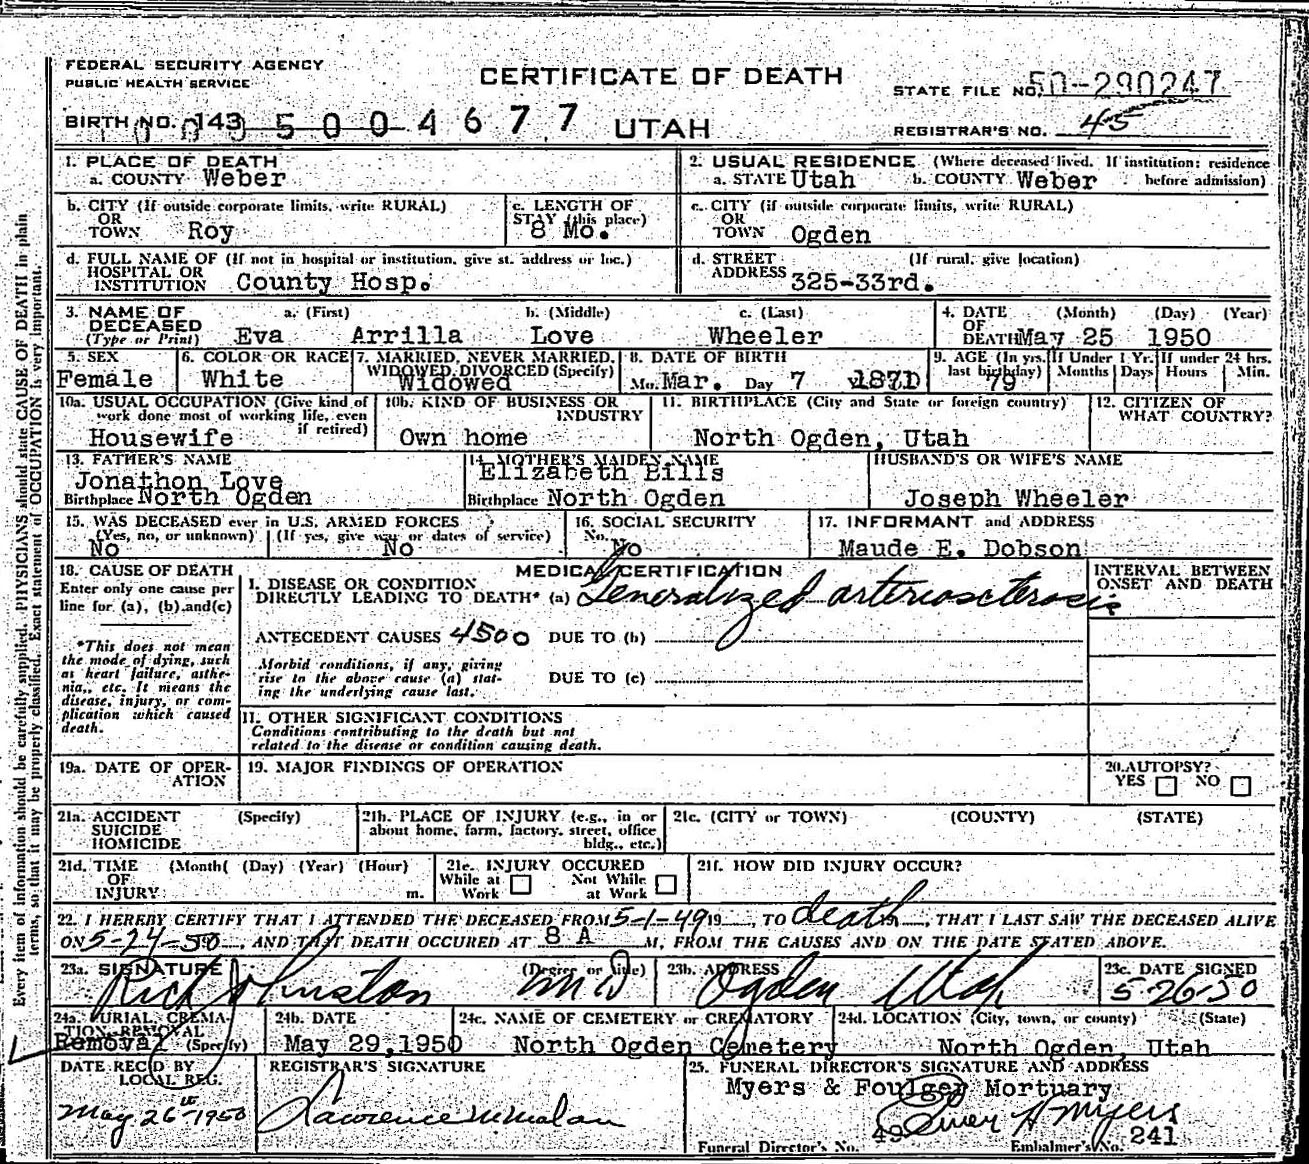 FEDERAL SECURITY AGENCY
PUBLIC HEALTH SERVICE
CERTIFICATE OF DEATH
STATE FILE NO. 50-290247
BIRTH NO. 143 5004677 UTAH
REGISTRAR'S NO. 45
1. PLACE OF DEATH
a. COUNTY Weber
2. USUAL RESIDENCE (Where deceased lived. If institution: residence before admission)
a. STATE Utah b. COUNTY Weber
b. CITY (If outside corporate limits, write RURAL) OR TOWN Roy
c. LENGTH OF STAY (this place) 8 Mo.
c. CITY (if outside corporate limits, write RURAL) OR TOWN Ogden
d. FULL NAME OF (If not in hospital or institution, give st. address or loc.) HOSPITAL OR INSTITUTION County Hosp.
d. STREET ADDRESS (If rural, give location) 325-33rd.
3. NAME OF DECEASED (Type or Print) a. (First) b. (Middle) c. (Last)
Eva Arrilla Love Wheeler
4. DATE OF DEATH (Month) (Day) (Year) May 25 1950
5. SEX Female
6. COLOR OR RACE White
7. MARRIED, NEVER MARRIED, WIDOWED, DIVORCED (Specify) Widowed
8. DATE OF BIRTH Mo. Mar. Day 7 1871
9. AGE (In yrs. last birthday) 79
If Under 1 Yr. Months Days
If under 24 hrs. Hours Min.
10a. USUAL OCCUPATION (Give kind of work done most of working life, even if retired) Housewife
10b. KIND OF BUSINESS OR INDUSTRY Own home
11. BIRTHPLACE (City and State or foreign country) North Ogden, Utah
12. CITIZEN OF WHAT COUNTRY?
13. FATHER'S NAME Jonathon Love
Birthplace North Ogden
14. MOTHER'S MAIDEN NAME Elizabeth Bills
Birthplace North Ogden
HUSBAND'S OR WIFE'S NAME
Joseph Wheeler
15. WAS DECEASED ever in U.S. ARMED FORCES
(Yes, no, or unknown) No (If yes, give war or dates of service) No
16. SOCIAL SECURITY No. No
17. INFORMANT and ADDRESS
Maude E. Dobson
18. CAUSE OF DEATH
Enter only one cause per line for (a), (b), and (c)
*This does not mean the mode of dying, such as heart failure, asthenia, etc. It means the disease, injury, or complication which caused death.
MEDICAL CERTIFICATION
INTERVAL BETWEEN ONSET AND DEATH
I. DISEASE OR CONDITION DIRECTLY LEADING TO DEATH* (a) Generalized arteriosclerosis
ANTECEDENT CAUSES 4500 DUE TO (b)
Morbid conditions, if any, giving rise to the above cause (a) stating the underlying cause last. DUE TO (c)
II. OTHER SIGNIFICANT CONDITIONS
Conditions contributing to the death but not related to the disease or condition causing death.
19a. DATE OF OPERATION
19. MAJOR FINDINGS OF OPERATION
20. AUTOPSY? YES NO
21a. ACCIDENT SUICIDE HOMICIDE (Specify)
21b. PLACE OF INJURY (e.g., in or about home, farm, factory, street, office bldg., etc.)
21c. (CITY or TOWN) (COUNTY) (STATE)
21d. TIME OF INJURY (Month( (Day) (Year) (Hour) m.
21e. INJURY OCCURED While at Work Not While at Work
21f. HOW DID INJURY OCCUR?
22. I HEREBY CERTIFY THAT I ATTENDED THE DECEASED FROM 5-1-49 19, TO death, THAT I LAST SAW THE DECEASED ALIVE
ON 5-24-50, AND THAT DEATH OCCURED AT 8 A M, FROM THE CAUSES AND ON THE DATE STATED ABOVE.
23a. SIGNATURE (Degree or title) Rich Johnston MD
23b. ADDRESS Ogden Utah
23c. DATE SIGNED 5-26-50
24a. BURIAL, CREMATION, REMOVAL (Specify) Removal
24b. DATE May 29, 1950
24c. NAME OF CEMETERY or CREMATORY North Ogden Cemetery
24d. LOCATION (City, town, or county) (State) North Ogden, Utah
DATE REC'D BY LOCAL REG. May 26th 1950
REGISTRAR'S SIGNATURE Lawrence M Malan
25. FUNERAL DIRECTOR'S SIGNATURE AND ADDRESS
Myers & Foulger Mortuary
Elmer H Myers
Funeral Director's No. 49 Embalmer's No. 241
Every item of information should be carefully supplied. PHYSICIANS should state CAUSE OF DEATH in plain
terms, so that it may be properly classified. Exact statement of OCCUPATION is very important.